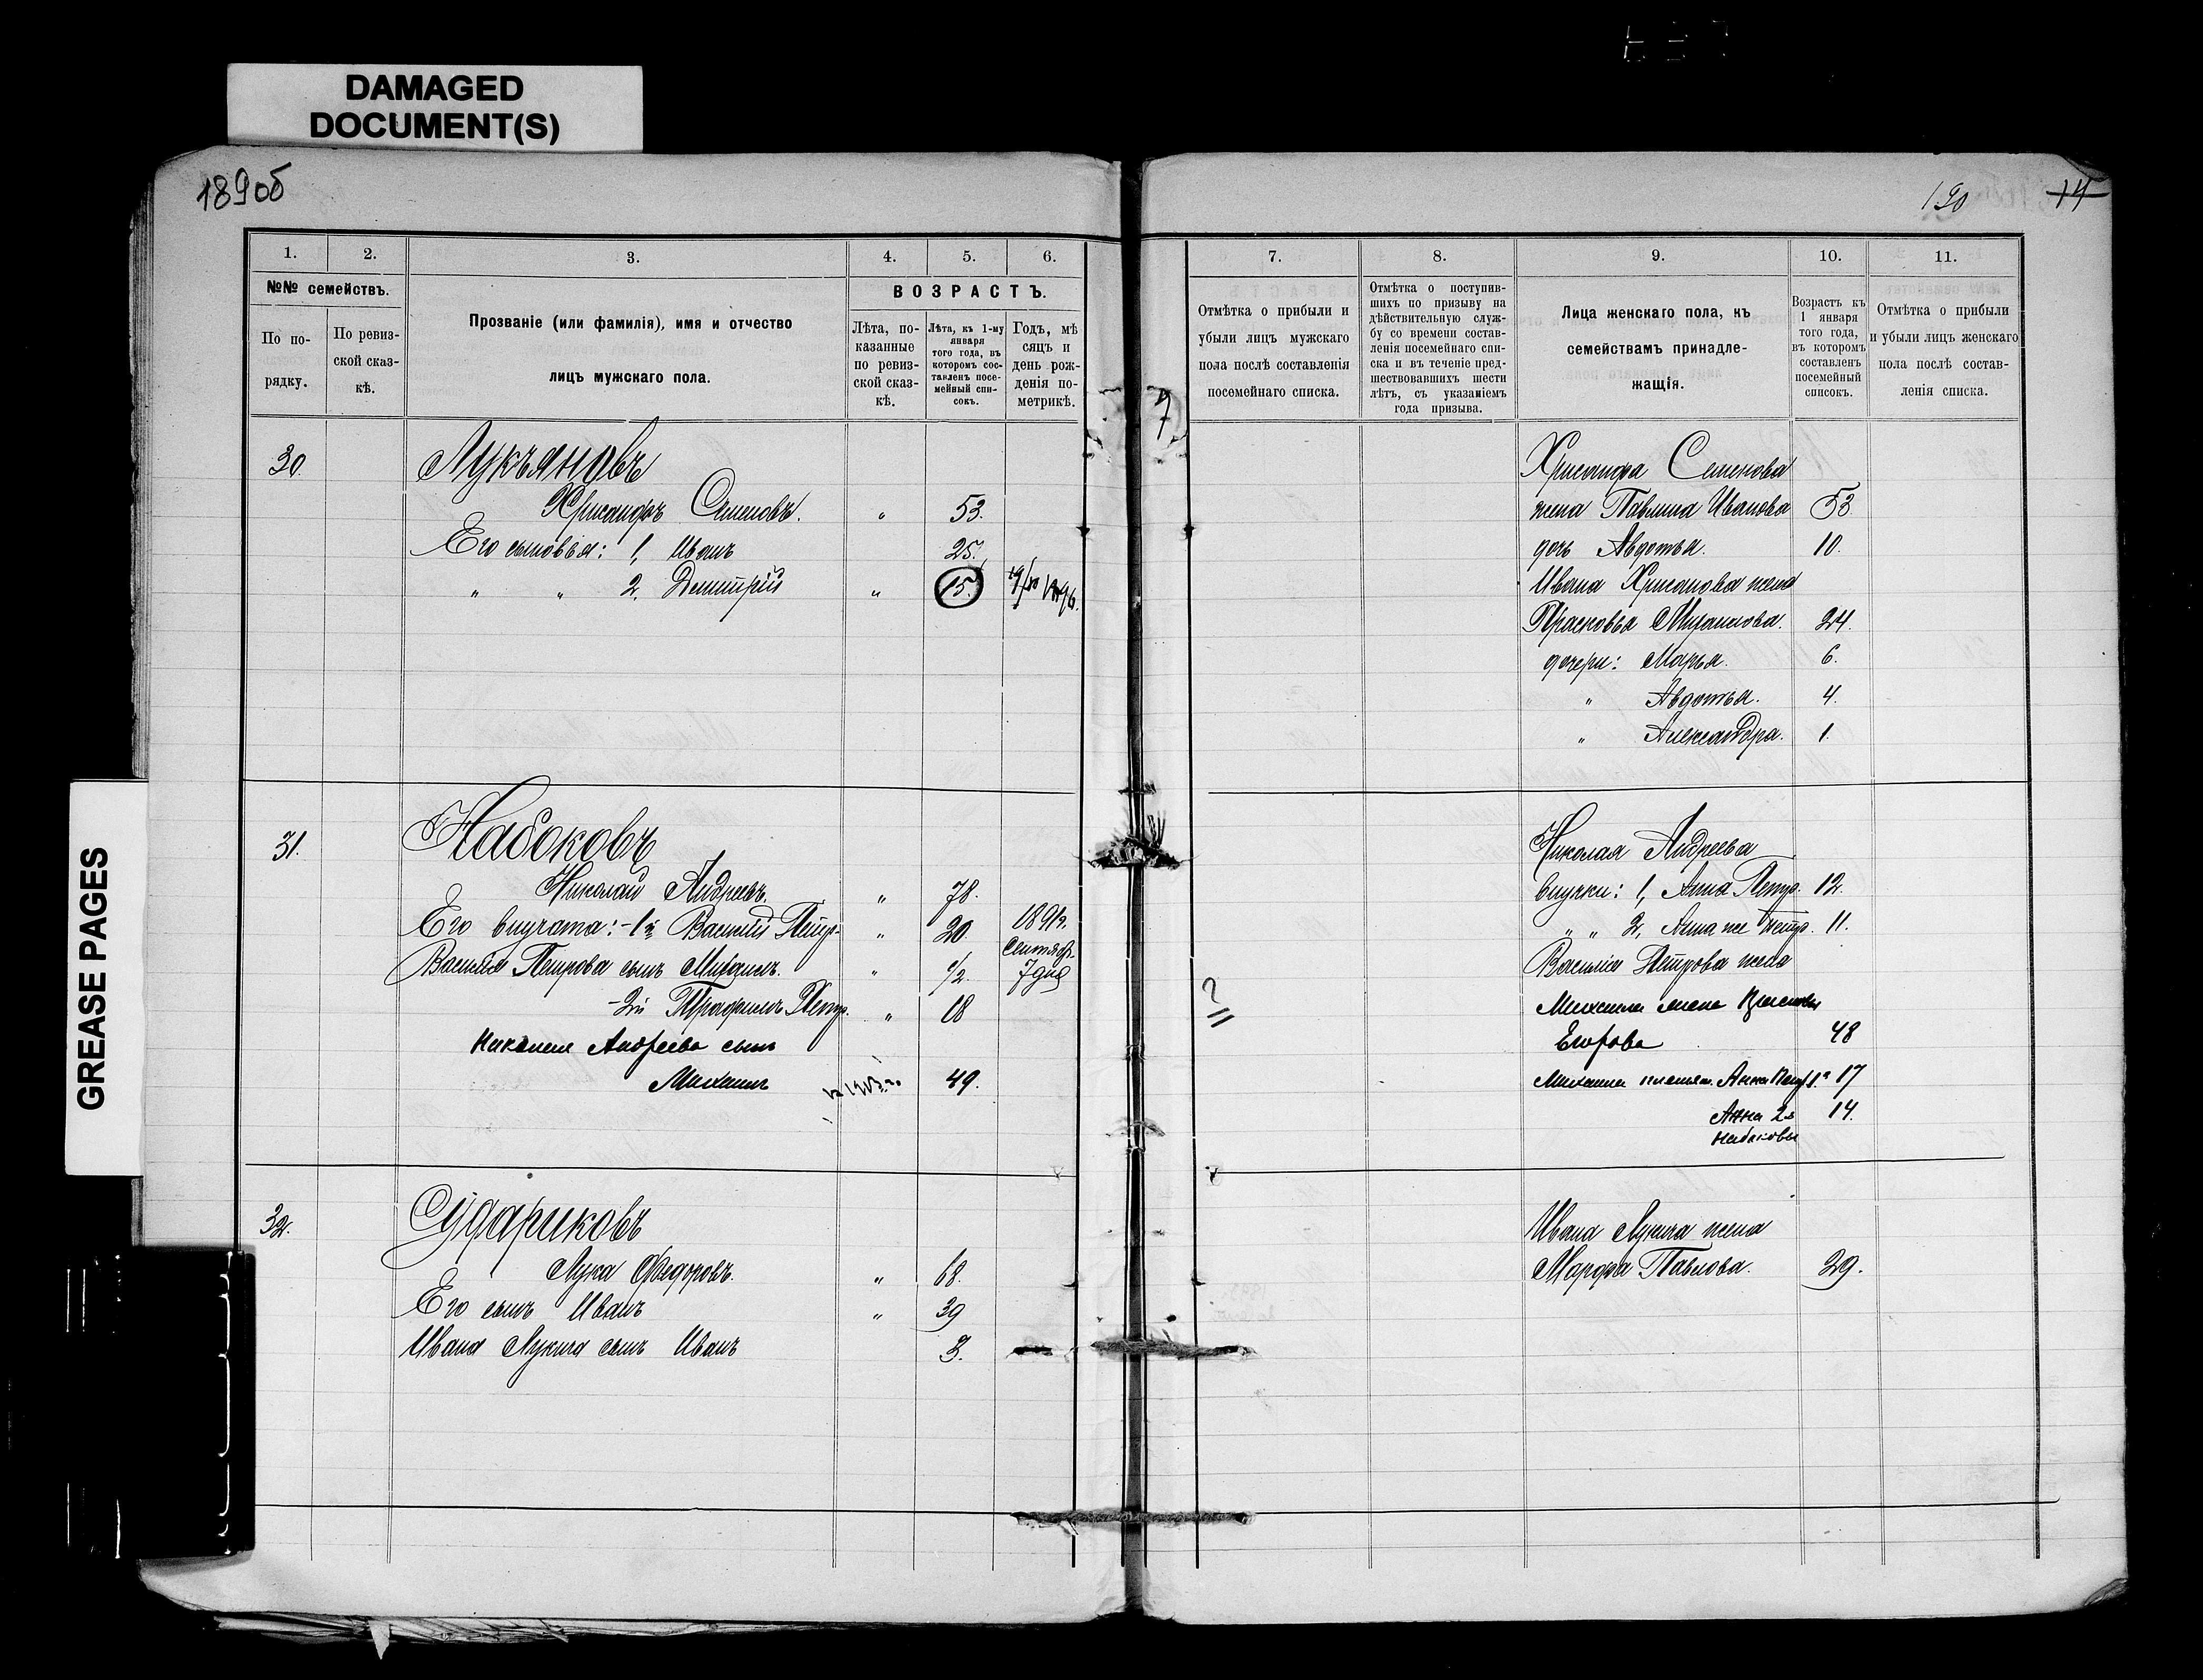 DAMAGED
DOCUMENT(S)
GREASE PAGES
189об
1.
2.
3.
4.
5.
6.
№№ семействъ.
По по-
рядку.
По ревиз-
ской сказ-
кѣ.
Прозваніе (или фамилія), имя и отчество
лицъ мужскаго пола.
ВОЗРАСТЪ.
Лѣта, по-
казанные
по ревиз-
ской сказ-
кѣ.
Лѣта, къ 1-му
января
того года, въ
которомъ сос-
тавленъ посе-
мейный спи-
сокъ.
Годъ, мѣ
сяцъ и
день рож-
денія по-
метрикѣ.
30. Лукъяновъ
Хрисанфъ Семеновъ. " 53.
Его сыновья: 1, Иванъ 25.
" " 2. Дмитрій " 15.
31. Набоковъ
Николай Андреевъ. " 78.
Его внучата: -1й Василій Петр- " 20 1891г.
Василія Петрова сынъ Михаилъ. " 1/2. Сентябр. 7 дня
-2й Трофимъ Петр. " 18
Николая Андреева сынъ
Михаилъ 49.
32. Судариковъ
Лука Федоровъ. " 68.
Его сынъ Иванъ " 39
Ивана Лукича сынъ Иванъ 3.
190 14
7
7.
8.
9.
10.
11.
Отмѣтка о прибыли и
убыли лицъ мужскаго
пола послѣ составленія
посемейнаго списка.
Отмѣтка о поступив-
шихъ по призыву на
дѣйствительную служ-
бу со времени состав-
ленія посемейнаго спи-
ска и въ теченіе пред-
шествовавшихъ шести
лѣтъ, съ указаніемъ
года призыва.
Лица женскаго пола, къ
семействамъ принадле-
жащія.
Возрастъ къ
1 января
того года,
въ которомъ
составленъ
посемейный
списокъ.
Отмѣтка о прибыли
и убыли лицъ женскаго
пола послѣ состав-
ленія списка.
Хрисанфа Семенова
жена Павлина Иванова 53
дочь Авдотья. 10.
Ивана Хрисанова жена
Прасковья Михаилова. 24.
дочери: Марья. 6.
" Авдотья. 4.
" Александра. 1.
Николая Андреева
внучки: 1, Анна Петр. 12.
" " 2, Анна же Петр. 11.
Василія Петрова жена
Михаила жена
Егорова 48
Михаила племян. Анна Петр 1я 17
Анна 2я 14.
Набоковы
Ивана Лукича жена
Марфа Павлова. 29.